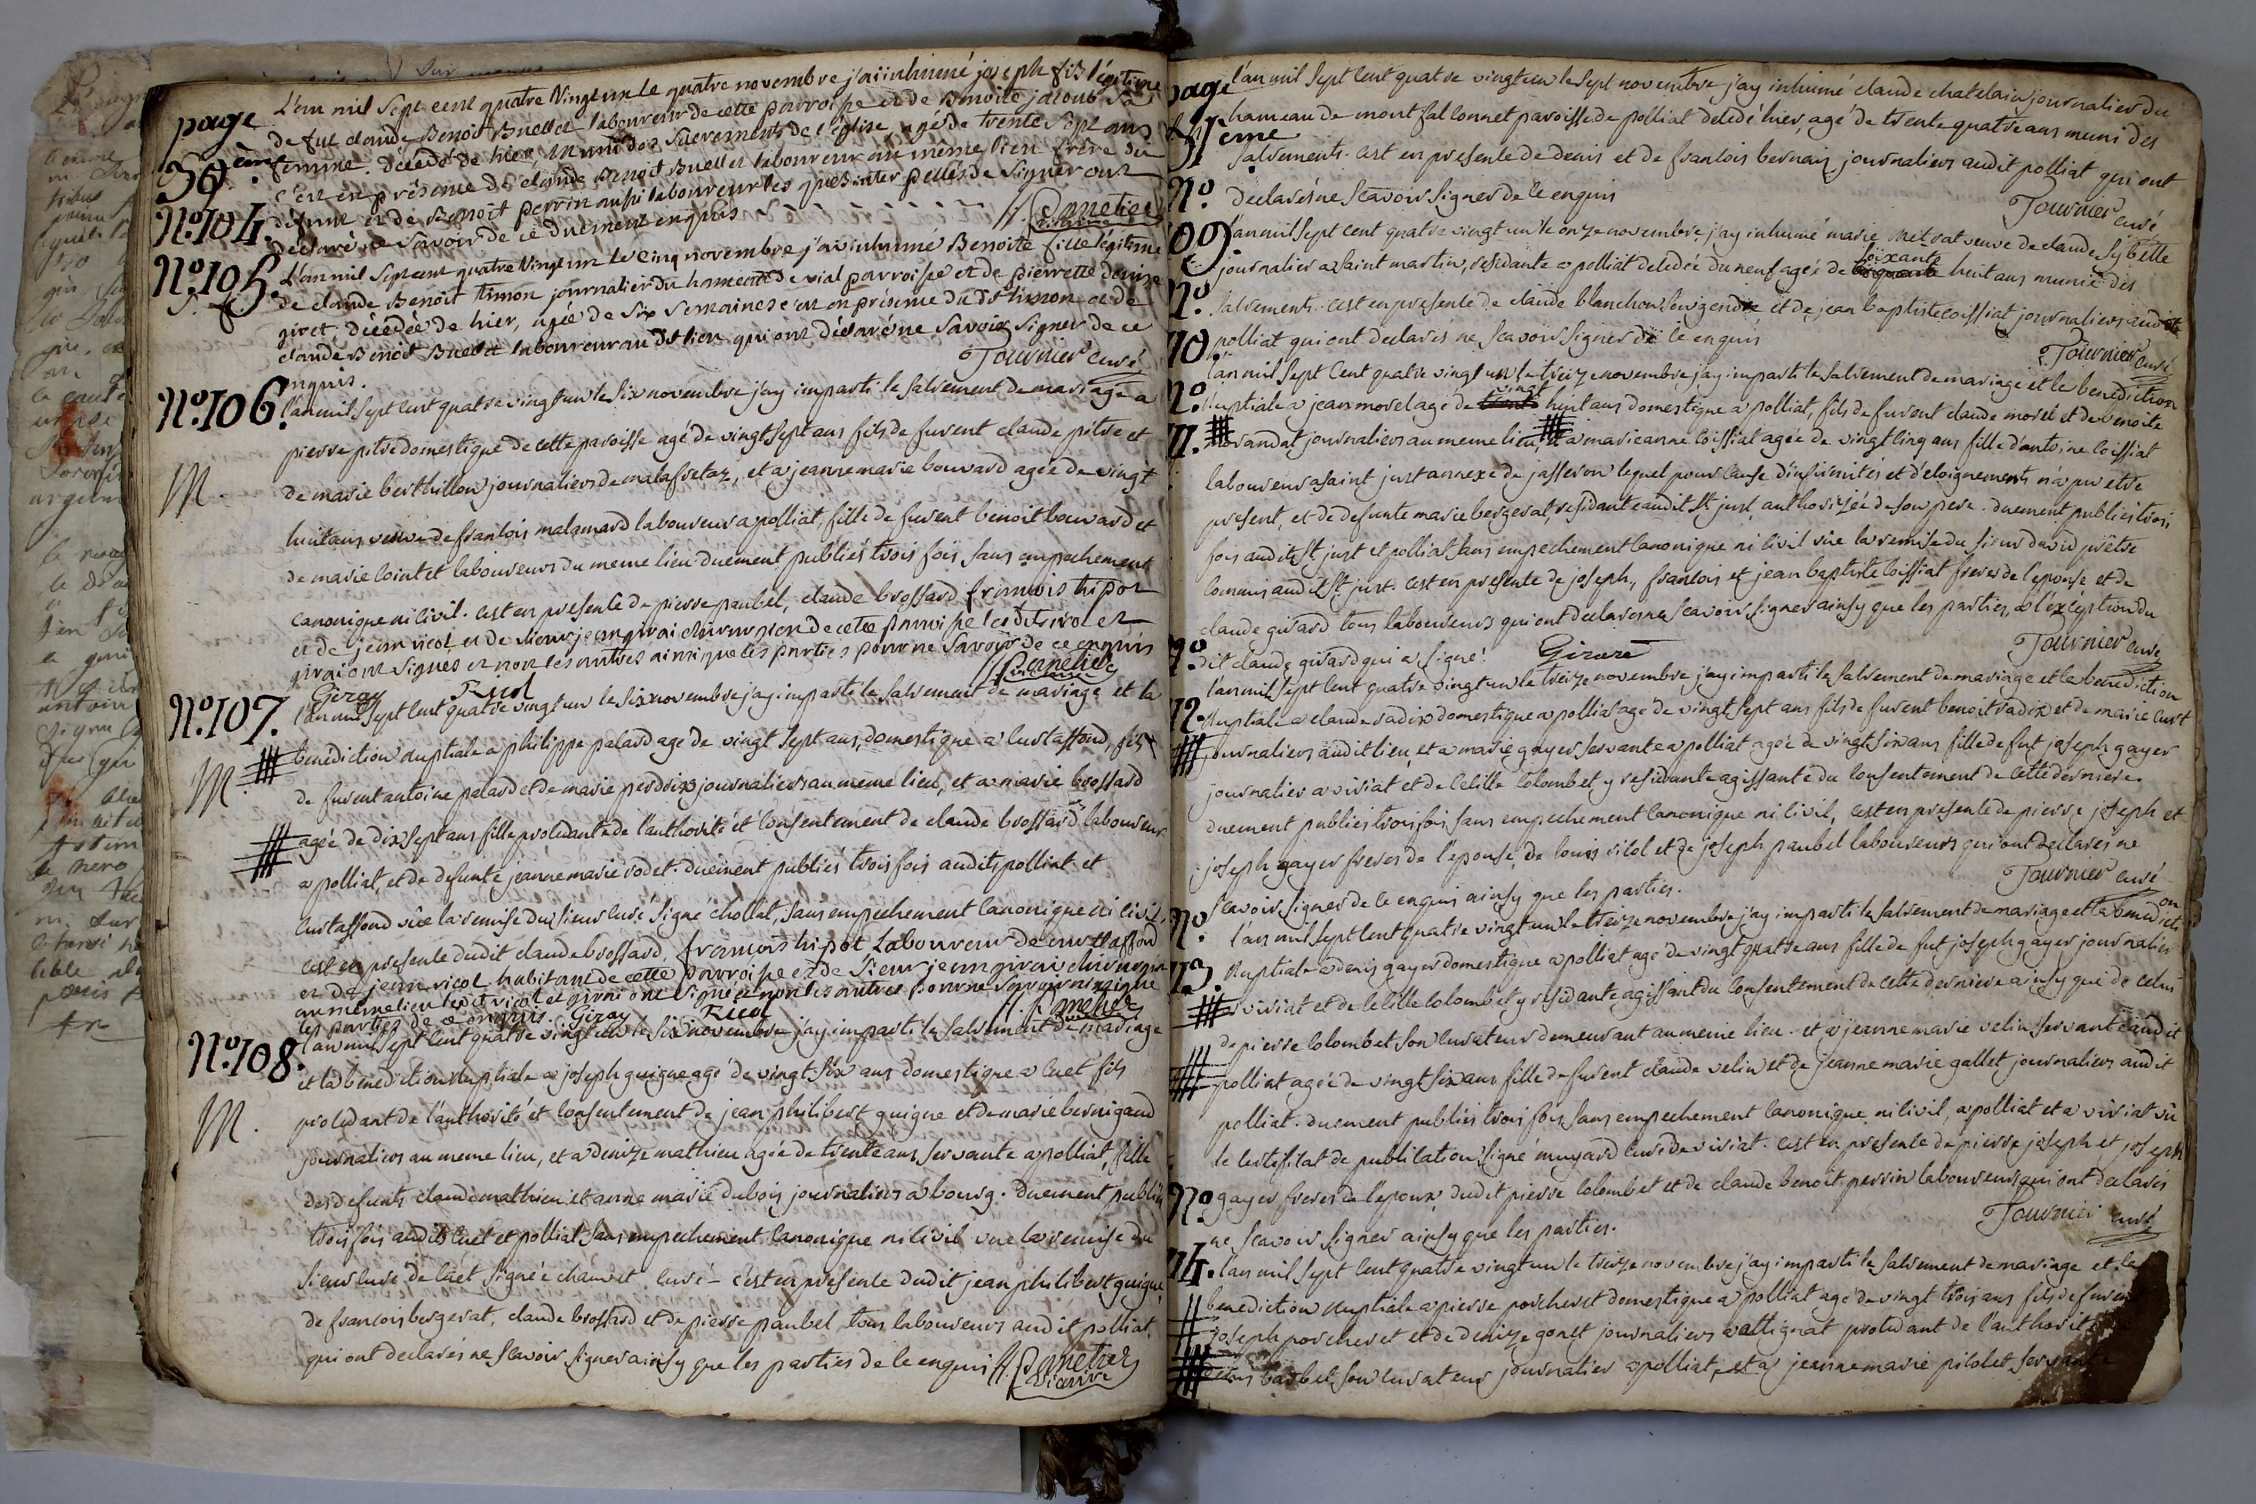 page
30ème
L'an mil sept cent quatre Vingt un le quatre novembre j'ai inhumé joseph fils légitime
de fut claude Benoit Buellet laboureur de cette parroisse et de Benoite jacoub sa
femme. Décédé de hier, Muni des Sacrements de l'église, agé de trente sept ans
C'est en présence de claude Benoit Buellet laboureur au même lieu frère du
N.º 104.
défunt et de Benoit perrin aussi laboureur les quels interpellés de signer ont
déclaré ne Savoir de ce duement enquis
vicaire
N.º 105.
L'an mil sept cent quatre Vingt un le cinq novembre j'ai inhumé Benoite fille légitime
de claude Benoit timon journalier du hameau de vial parroisse et de pierrette denise
giret. Décédée de hier, agée de Six Semaines c'est en présence du dt timon et de
claude Benoit Buellet laboureur au dt lien qui ont déclaré ne Savoir Signer de ce
enquis.
Tournier curé
N.º 106.
M.
l'an mil sept cent quatre vingt un le six novembre j'ay imparti le sacrement de mariage a
pierre pitre domestique de cette paroisse agé de vingt sept ans fils de furent claude pitre et
de marie berthillon journaliers de malafretaz, et a jeanne marie bouvard agée de vingt
huit ans veuve de francois malamard laboureur a polliat, fille de furent benoit bouvard et
de marie cointet laboureurs du meme lieu duement publiés trois fois, sans empechement
canonique ni civil. c'est en presence de pierre paubel, claude brossard françois tripoz
et de jean ricol et de sieur jean girai chirurgien de cette parroisse les dits ricol et
girai ont signés et non les autres ainsi que les parties pour ne Savoir de ce enquis
Giray Ricol
vicaire
N.º 107.
M.
l'an mil sept cent quatre vingt un le six novembre j'ay imparti le sacrement de mariage et la
benediction nuptiale a philippe palard agé de vingt sept ans, domestique a Curtaffond, fils
de furent antoine palard et de marie perdrix journaliers au meme lieu, et a marie brossard
agée de dix sept ans fille procedante de l'authorité et consentement de claude brossard laboureur
a polliat, et de defunte jeanne marie rodet. duement publiés trois fois audits polliat et
Curtaffond vüe la remise du sieur curé signé chollat, sans empechement canonique ni civil,
cest en presence dudit claude brossard, françois tripot Laboureur de curtaffond
et de jean ricol habitant de cette parroisse et de Sieur jean girai chirurgien
au meme lieu led. ricol et girai ont signé et non les autres pour ne savoir ainsi que
les parties de ce enquis. Giray Ricol
N.º 108.
M.
l'an mil sept cent quatre vingt un le six novembre j'ay imparti le sacrement de mariage
et la benediction nuptiale a joseph guigue agé de vingt six ans domestique a Cuet fils
procedant de l'authorité et consentement de jean philibert guigue et de marie bernigaud
journaliers au meme lieu, et a denize mathieu agée de trente ans servante a polliat, fille
des defunts claude mathieu et anne marie dubois journaliers a bourg. duement publiés
trois fois audits Cuet et polliat sans empechement canonique ni civil vue la remise du
sieur curé de Cuet signée chanvet curé – c'est en presence dudit jean philibert guigue
de francois bergerat, claude brossard et de pierre paubel tous laboureurs audit polliat
qui ont declarés ne scavoir signer ainsy que les parties de ce enquis
vicaire
page
31eme
l'an mil sept cent quatre vingt un le sept novembre j'ay inhumé claude chatelain journalier du
hameau de mont fallconnet paroisse de polliat decedé hier, agé de trente quatre ans muni des
sacrements. cest en presence de denis et de francois bernain journaliers audit polliat qui ont
declarés ne scavoir signer de ce enquis
Tournier curé
N.º
09.
l'an mil sept cent quatre vingt un le onze novembre j'ay inhumé marie metrat veuve de claude Sybelle
journalier a saint martin, residante a polliat decedée du neuf agée de soixante huit ans munie des
sacrements. cest en presence de claude blanchon son gendre et de jean baptiste coissiat journaliers audit
polliat qui ont declarés ne scavoir signer de ce enquis
Tournier curé
N.º
10.
N.º
11.
l'an mil sept Cent quatre vingt un le treize novembre j'ay imparti le sacrement de mariage et le benediction
nuptiale a jean morel agé de vingt huit ans domestique a polliat, fils de furent claude morel et de benoite
morandat journaliers au meme lieu, et a marieanne coissiat agée de vingt cinq ans fille d'antoine coissiat
laboureur a saint just annexe de jasseron lequel pour cause d'infirmités et d'eloignement n'a pu etre
present, et de defunte marie bergerat, residante audit St just, authorizée de son pere. duement publiés trois
fois audits St just et polliat sans empechement canonique ni civil vüe la remise du sieur david prêtre
commis audit St just. cest en presence de joseph, francois et jean baptiste coissiat freres de l'epouse et de
claude girard tous laboureurs qui ont declarés ne scavoir signer ainsy que les parties, a l'exception du
dit claude girard qui a signé.
Girard
Tournier curé
N.º
12.
l'an mil sept cent quatre vingt un le treize novembre j'ay imparti le sacrement de mariage et la benediction
nuptiale a claude radix domestique a polliat agé de vingt sept ans fils de furent benoit radix et de marie curt
journaliers audit lieu, et a marie gayer servante a polliat agée de vingt six ans fille de fut joseph gayer
journalier a viriat et de cecille Colombet y residante agissante du consentement de cette derniere.
duement publiés trois fois sans empechement canonique ni civil, cest en presence de pierre joseph et
joseph gayer freres de l'epouse, de louis ricol et de joseph paubel laboureurs qui ont declarés ne
scavoir signer de ce enquis ainsy que les parties.
Tournier curé
N.º
13.
l'an mil sept cent quatre vingt un le treize novembre j'ay imparti le sacrement de mariage et la benediction
nuptiale a denis gayer domestique a polliat agé de vingt quatre ans fille de fut joseph gayer journalier
a viriat et de cecille colombet y residante agissant du consentement de cette derniere ainsy que de celui
de pierre colombet son curateur demeurant au meme lieu. et a jeanne marie velin servante audit
polliat agée de vingt six ans fille de furent claude velin et de jeanne marie gallet journaliers audit
polliat. duement publiés trois fois sans empechement canonique ni civil, a polliat et a viriat vû
le certificat de publication signé muyard curé de viriat. cest en presence de pierre joseph et joseph
gayer freres de l'epoux, dudit pierre colombet et de claude benoit perrin laboureurs qui ont declarés
ne scavoir signer ainsy que les parties.
Tournier curé
N.º
14.
l'an mil sept cent quatre vingt un le treize novembre j'ay imparti le sacrement de mariage et le
benediction nuptiale a pierre porcheret domestique a polliat agé de vingt trois ans fils de furent
joseph porcheret et de denize gonet journaliers a attignat procedant de l'authorité
barbet son curateur journalier a polliat, et a jeanne marie pilolet servante